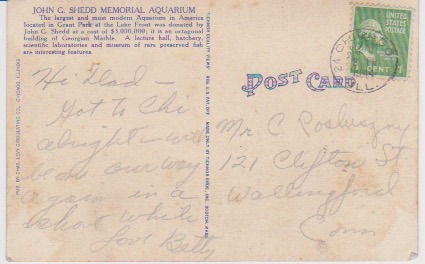 JOHN G. SHEDD MEMORIAL AQUARIUM
The largest and most modern Aquarium in America
located in Grant Park at the Lake Front was donated by
John G. Shedd at a cost of $3,000,000; it is an octagonal
building of Georgian Marble. A lecture hall, hatchery,
scientific laboratories and museum of rare preserved fish
are interesting features.
Hi Dad –
Got to Chi
alright – will
be on our way
again in a
short while
Love Betty
POST CARD
UNITED
STATES
POSTAGE
1 CENT 1
CHICAGO
ILL.
Mr C
121 Clifton St
Wallingford
Conn